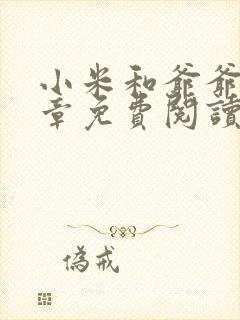 小米和爺爺
章免費閱讀
偽戒